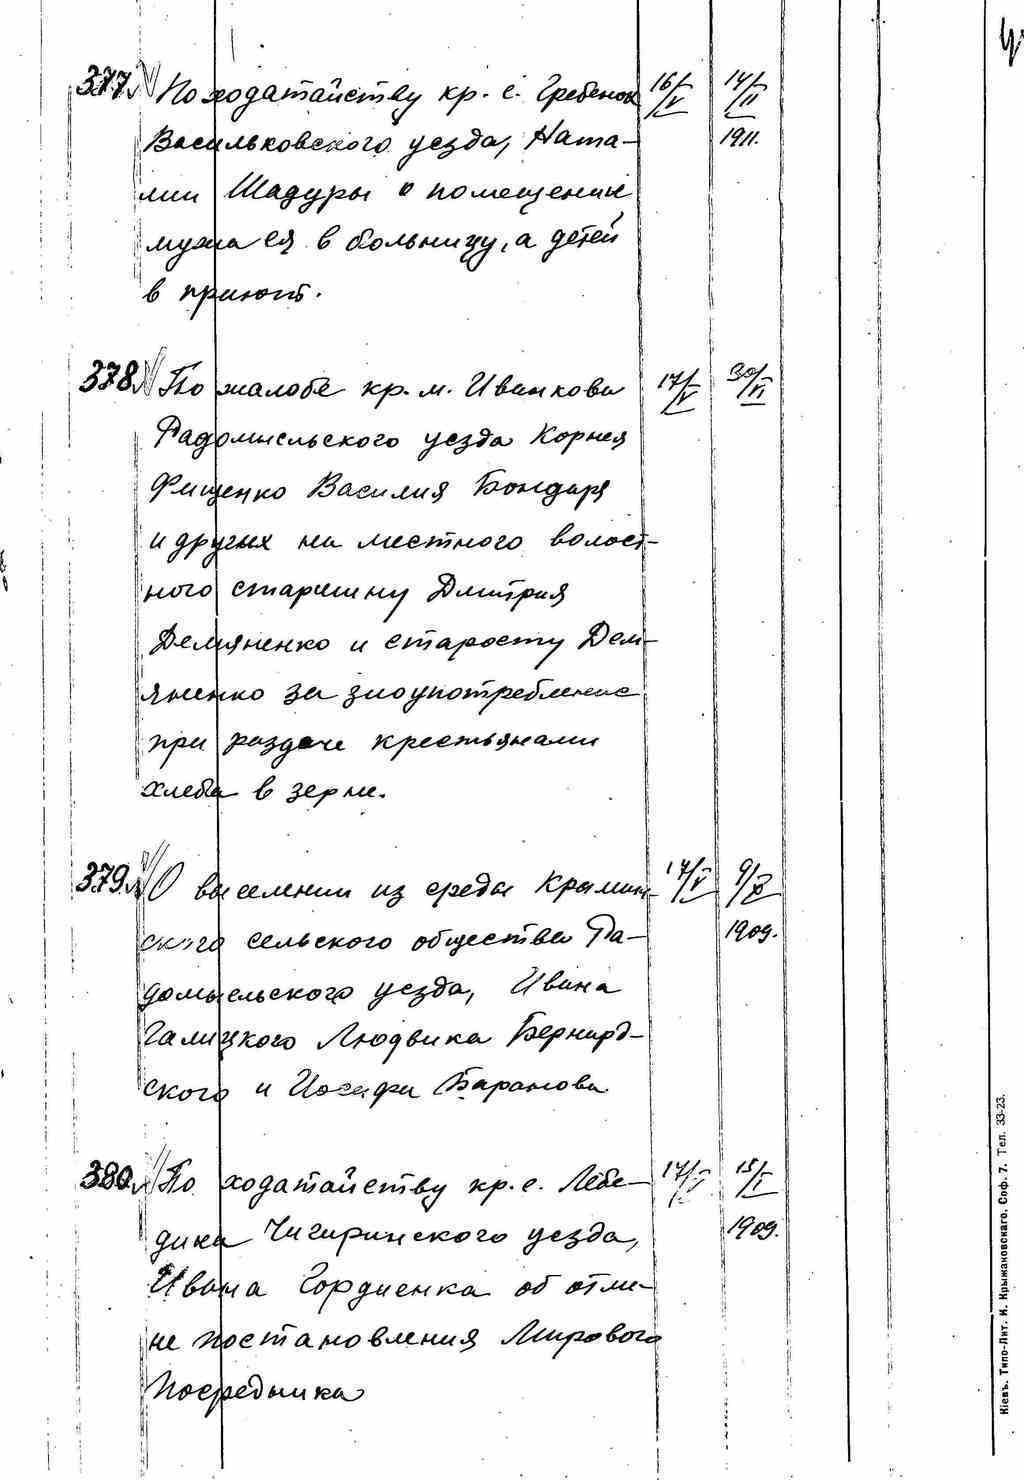 377. По ходатайству кр. с. Гребенок 16/V 14/II
Васильковского уезда, Ната- 1911.
лии Шадуры о помещении
мужа ея в больницу, а детей
в приют.
378. По жалобе кр. м. Иванкова 17/V 30/VI
Радомысльского уезда Корнея
Фищенко Василия Бондаря
и других на местного волост-
ного старшину Дмитрия
Демяненко и старосту Дем-
яненко за злоупотребление
при раздаче крестьянами
хлеба в зерне.
379. О выселении из среды Крымин- 17/V 9/X
ского сельского общества Ра- 1909.
домысльского уезда, Ивана
Галицкого Людвика Бернард-
ского и Иосифа Баранова
380. По ходатайству кр. с. Лебе- 17/V 15/I
дика Чигиринского уезда, 1909.
Ивана Гордиенка об отме-
не постановления Мирового
Посредника
Кіевъ. Типо-Лит. И. Крыжановскаго. Соф. 7. Тел. 33-23.